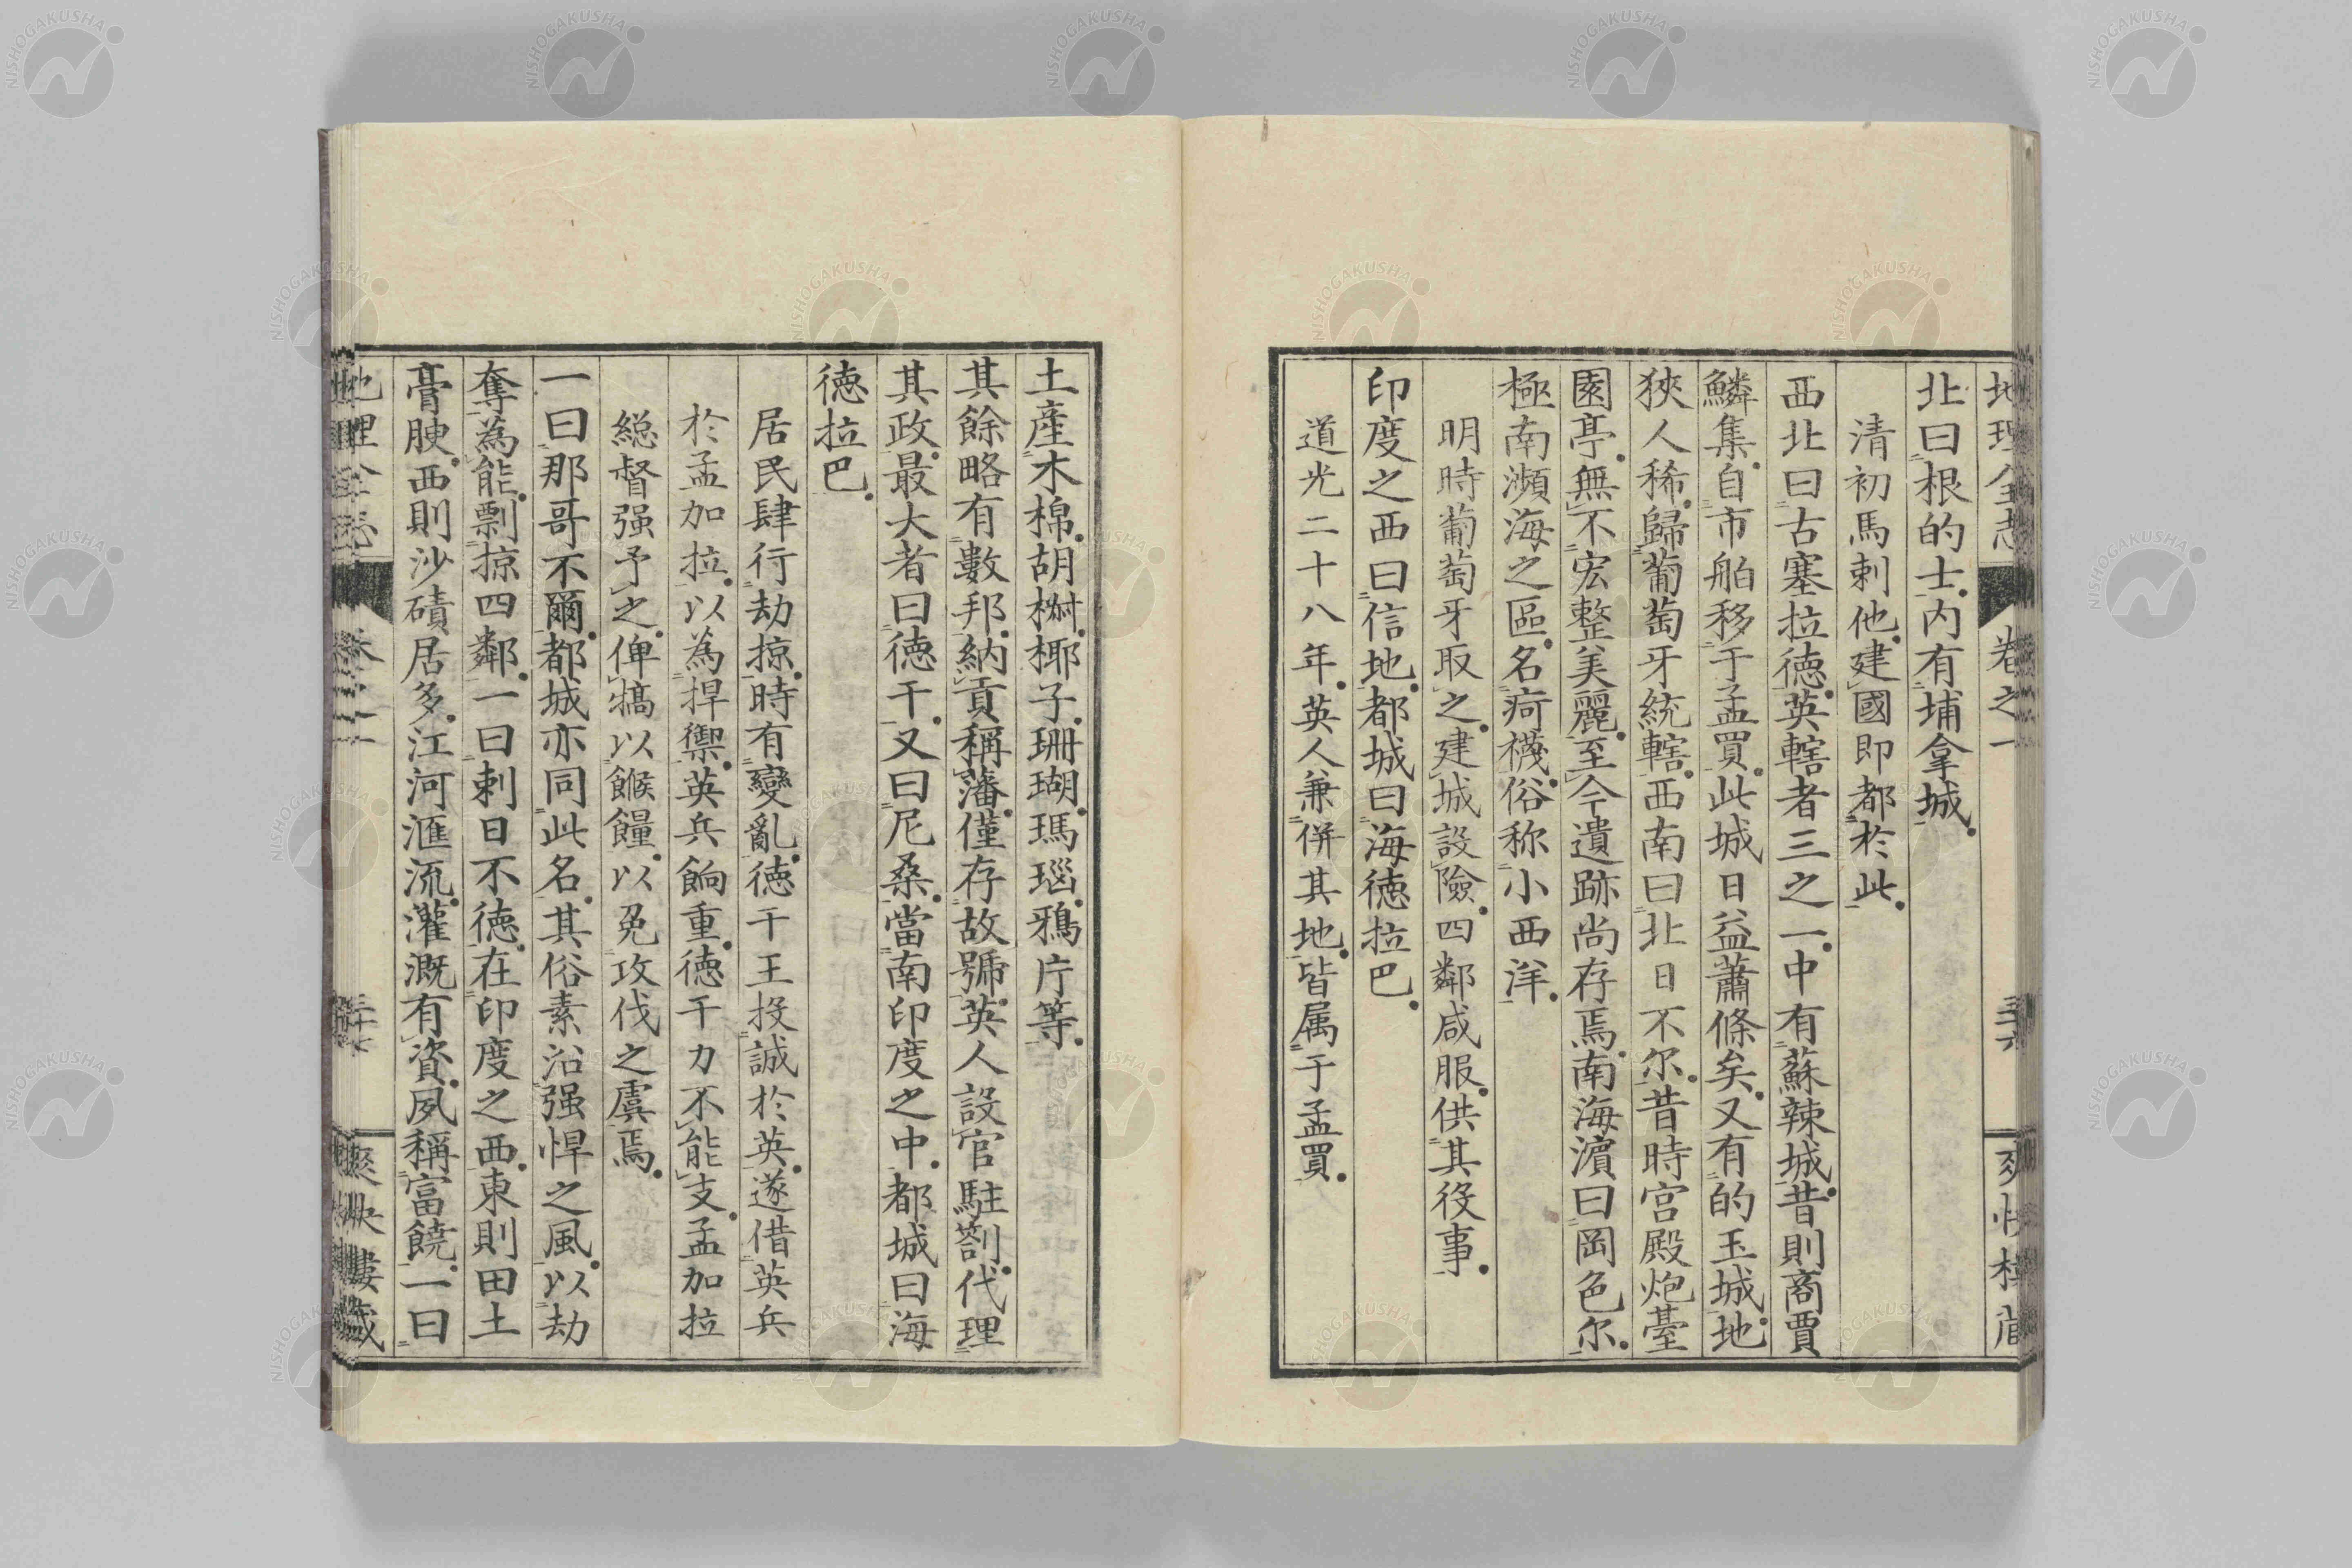 地理全志 卷之一 三六 爽快樓藏
北曰根的士。内有埔拿城。
清初馬剌他。建國即都於此。
西北曰古塞拉德。英轄者三之一。中有蘇辣城。昔則商賈
鱗集。自市舶移于孟買。此城日益蕭條矣。又有的玉城。地
狹人稀。歸葡萄牙統轄。西南曰北日不尔。昔時宮殿炮臺
園亭。無不宏整美麗。至今遺跡尚存焉。南海濵曰岡色尔。
極南瀕海之區。名疴襪。俗称小西洋。
明時葡萄牙取之。建城設險。四鄰咸服。供其役事。
印度之西曰信地。都城曰海德拉巴。
道光二十八年。英人兼併其地。皆属于孟買。
土産木棉。胡椒。椰子。珊瑚。瑪瑙。鴉片等。
其餘略有數邦。納貢稱藩。僅存故號。英人設官駐劄。代理
其政。最大者曰德干。又曰尼桑。當南印度之中。都城曰海
徳拉巴。
居民肆行劫掠。時有變亂。德干王投誠於英。遂借英兵
於孟加拉。以為捍禦。英兵餉重。德干力不能支。孟加拉
総督强予之。俾犒以餱糧。以免攻伐之虞焉。
一曰那哥不爾。都城亦同此名。其俗素沿强悍之風。以劫
奪為能。剽掠四鄰。一曰剌日不德。在印度之西。東則田土
膏腴。西則沙磧居多。江河滙流。灌溉有資。夙稱富饒。一曰
地理全志 卷之一 三七 爽快樓藏
NISHOGAKUSHA